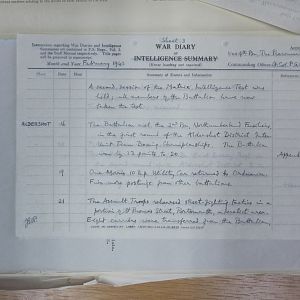 Sheet 3
WAR DIARY
or
INTELLIGENCE SUMMARY
(Erase heading not required)
Instructions regarding War Diaries and Intelligence
Summaries are contained in F.S. Regs., Vol. I
and the Staff Manual respectively. Title pages
will be prepared in manuscript.
Month and Year February 1942
Commanding Officer
Place Date Hour Summary of Events and Information
A second session of the Matrix Intelligence Test was
held; all members of the Battalion have now
taken the test.
ALDERSHOT 16 The Battalion met the 2nd Bn. Northumberland Fusiliers
in the first round of the Aldershot District Inter
Unit Team Boxing Championships. The Battalion
won by 13 points to 20.
19 One Morris 10 h.p. Utility Car returned to Ordnance.
postings from other battalions.
21 The Assault Troops rehearsed street-fighting tactics in a
portion of St Thomas Street, Portsmouth, a derelict area.
Eight carriers were transferred from the Battalion,